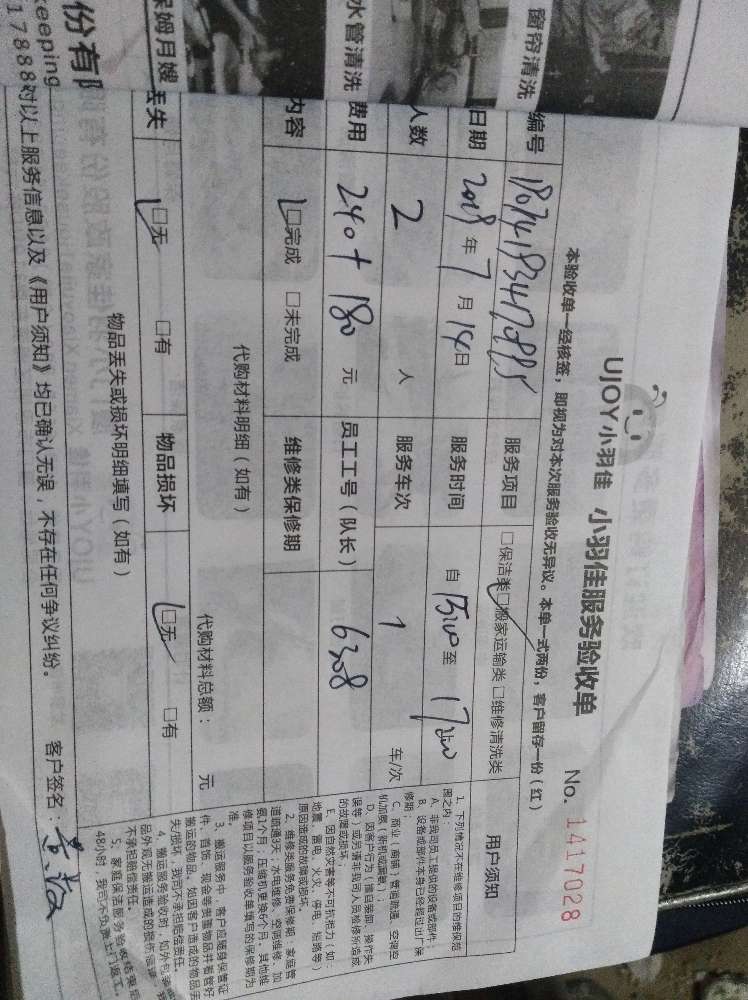 窗帘清洗
水管清洗
保姆月嫂
份有限
keeping
17888
UJOY小羽佳 小羽佳服务验收单
No. 1417028
本验收单一经核签，即视为对本次服务验收无异议。本单一式两份，客户留存一份（红）
编号
服务项目 □保洁类□搬家运输类□维修清洗类
用户须知
日期 2018年7月14日 服务时间 自 15:00 至
人数 2 人 服务车次 1 车/次
费用 240+180 元 员工工号（队长） 6308
内容 □完成 □未完成 维修类保修期
代购材料明细（如有）
代购材料总额： 元
丢失 □无 □有 物品损坏 □无 □有
物品丢失或损坏明细填写（如有）
对以上服务信息以及《用户须知》均已确认无误，不存在任何争议纠纷。 客户签名：
1、下列情况不在维修项目的维保范
围之内：
A、非我司员工提供的设备或部件；
B、设备或部件本身已经超过出厂保
修期；
C、商业（商铺）管道疏通、空调空
机加氨（新机或漏氨）；
D、因客户行为（擅自装卸、操作失
误等）或另请非我司人员检修所造成
的故障或损坏；
E、因自然灾害等不可抗拒力（如：
地震、雷电、火灾、停电、短路等）
原因造成的故障或损坏。
2、维修类服务免费保修期：家庭管
道疏通3天；水电维修、空调维修、加
氨1个月，压缩机更换6个月，其他维
修项目以服务验收单填写的保修期为
准。
3、搬运服务中，客户应随身保管证
件、首饰、现金等贵重物品并看管好
搬运的物品。如因客户造成的物品丢
失/损坏，我司不承担赔偿责任。
4、搬运服务验收时，如外包装
品外观无搬运造成的损伤痕迹，我
不承担赔偿责任。
5、家庭保洁服务验收
48小时，我司不免费上门返工。